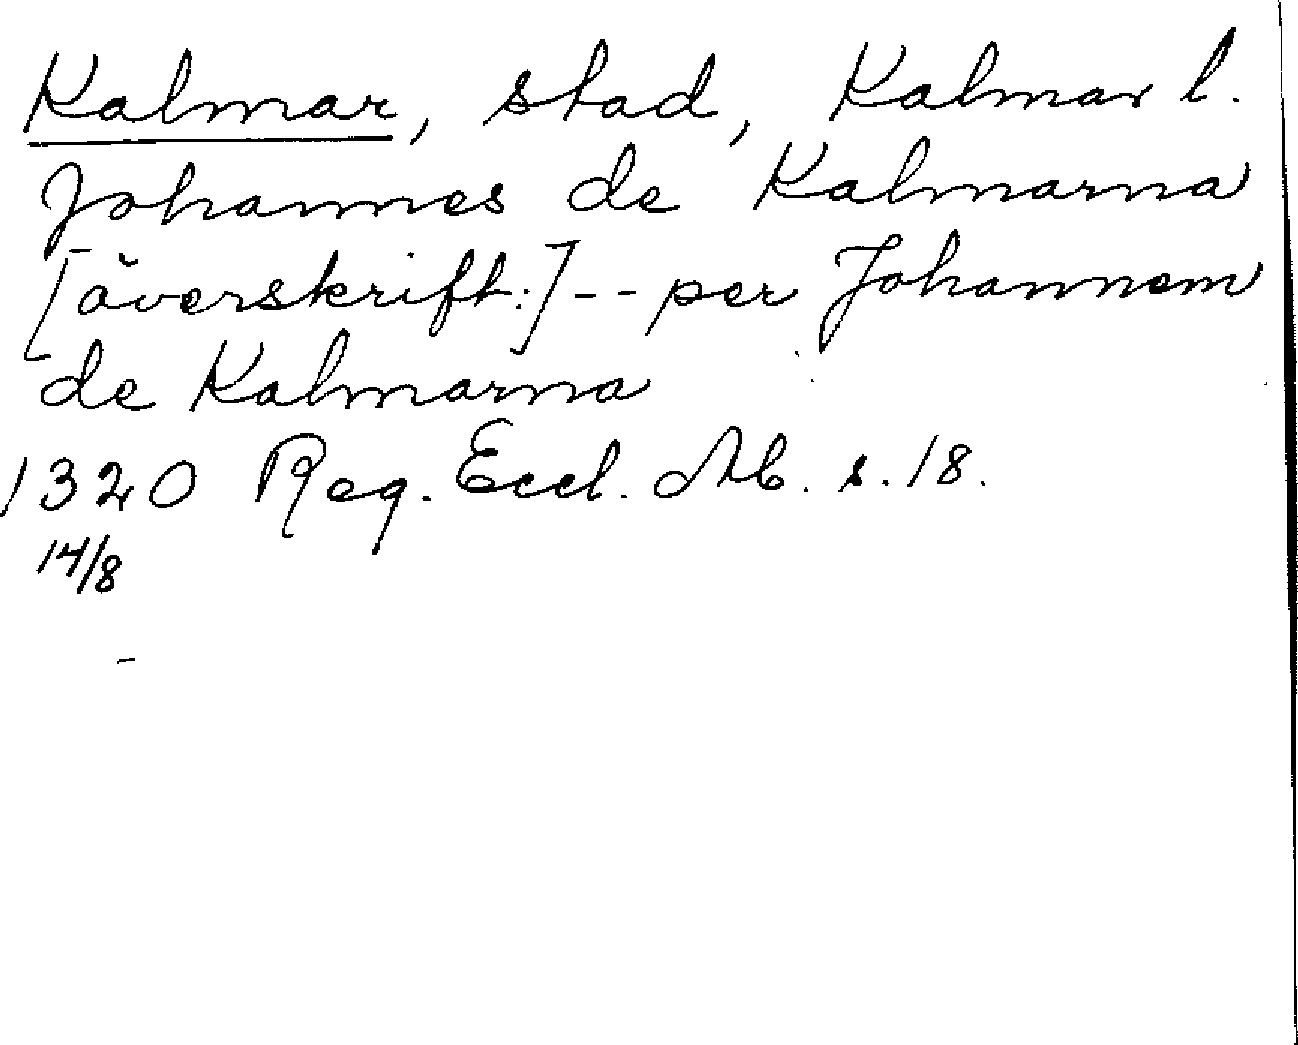 Kalmar, stad, Kalmar l.
Johannes de Kalmarna
[överskrift:] -- per Johannem
de Kalmarna
1320 Reg. Eccl. Ab. s. 18.
14/8